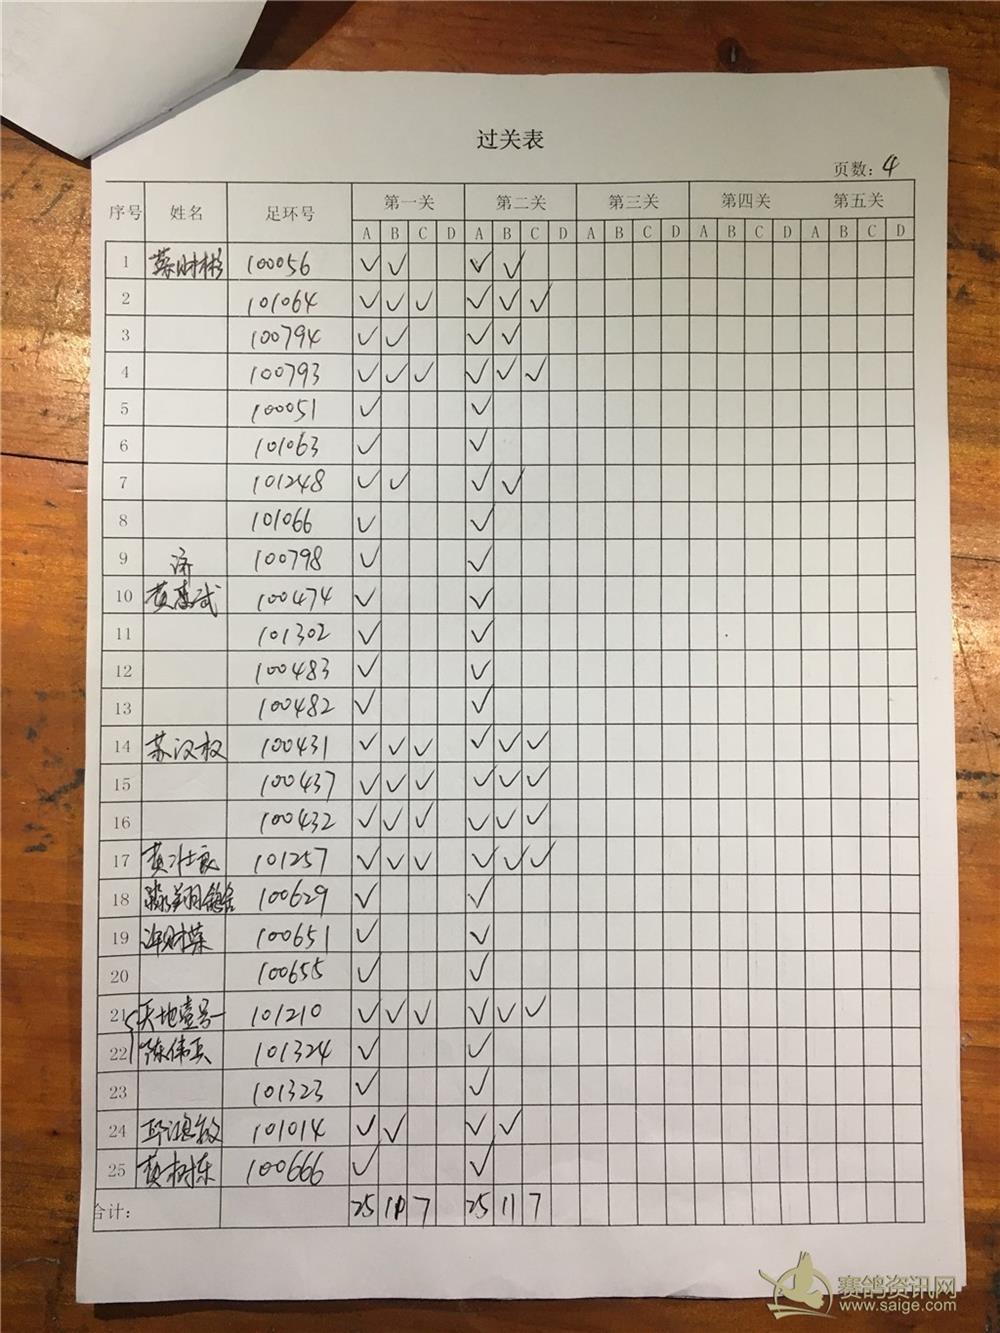 过关表
页数：4
序号 姓名 足环号 第一关 第二关 第三关 第四关 第五关
A B C D A B C D A B C D A B C D A B C D
1 蔡财彬 100056 ✓ ✓ ✓ ✓
2 101064 ✓ ✓ ✓ ✓ ✓ ✓
3 100794 ✓ ✓ ✓ ✓
4 100793 ✓ ✓ ✓ ✓ ✓ ✓
5 100051 ✓ ✓
6 101063 ✓ ✓
7 101248 ✓ ✓ ✓ ✓
8 101066 ✓ ✓
9 100798 ✓ ✓
济
10 黄 武 100474 ✓ ✓
11 101302 ✓ ✓
12 100483 ✓ ✓
13 100482 ✓ ✓
14 苏汉权 100431 ✓ ✓ ✓ ✓ ✓ ✓
15 100437 ✓ ✓ ✓ ✓ ✓ ✓
16 100432 ✓ ✓ ✓ ✓ ✓ ✓
17 黄 101257 ✓ ✓ ✓ ✓ ✓ ✓
18 翔鸽舍 100629 ✓ ✓
19 许财荣 100651 ✓ ✓
20 100655 ✓ ✓
21 天地壹号 101210 ✓ ✓ ✓ ✓ ✓ ✓
22 陈伟兵 101324 ✓ ✓
23 101323 ✓ ✓
24 邱鸿 101014 ✓ ✓ ✓ ✓
25 黄树东 100666 ✓ ✓
合计： 25 11 7 25 11 7
赛鸽资讯网
www.saige.com